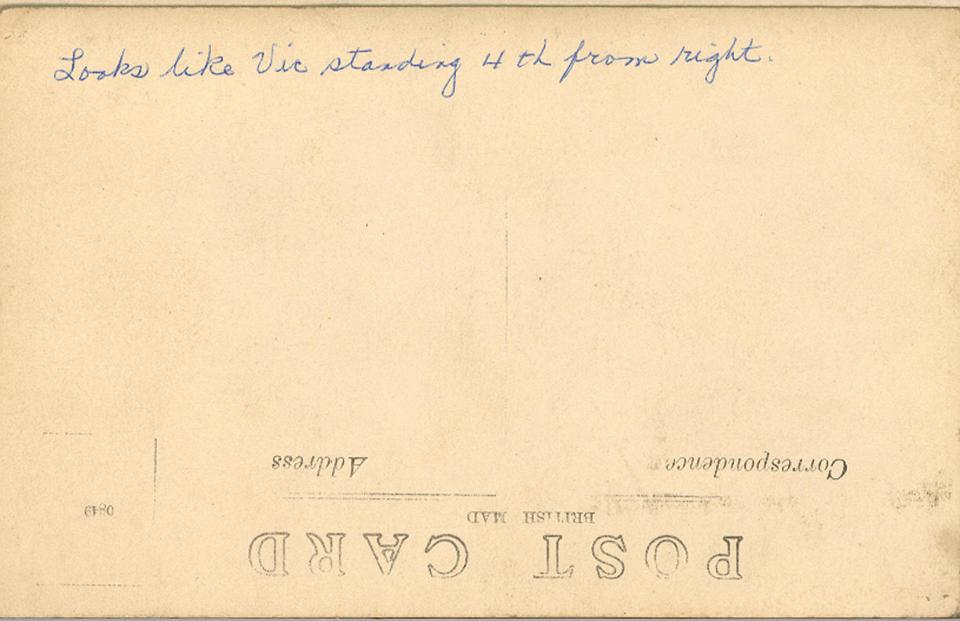 Looks like Vic standing 4th from right.
POST CARD
BRITISH MAD
Correspondence
Address
0849